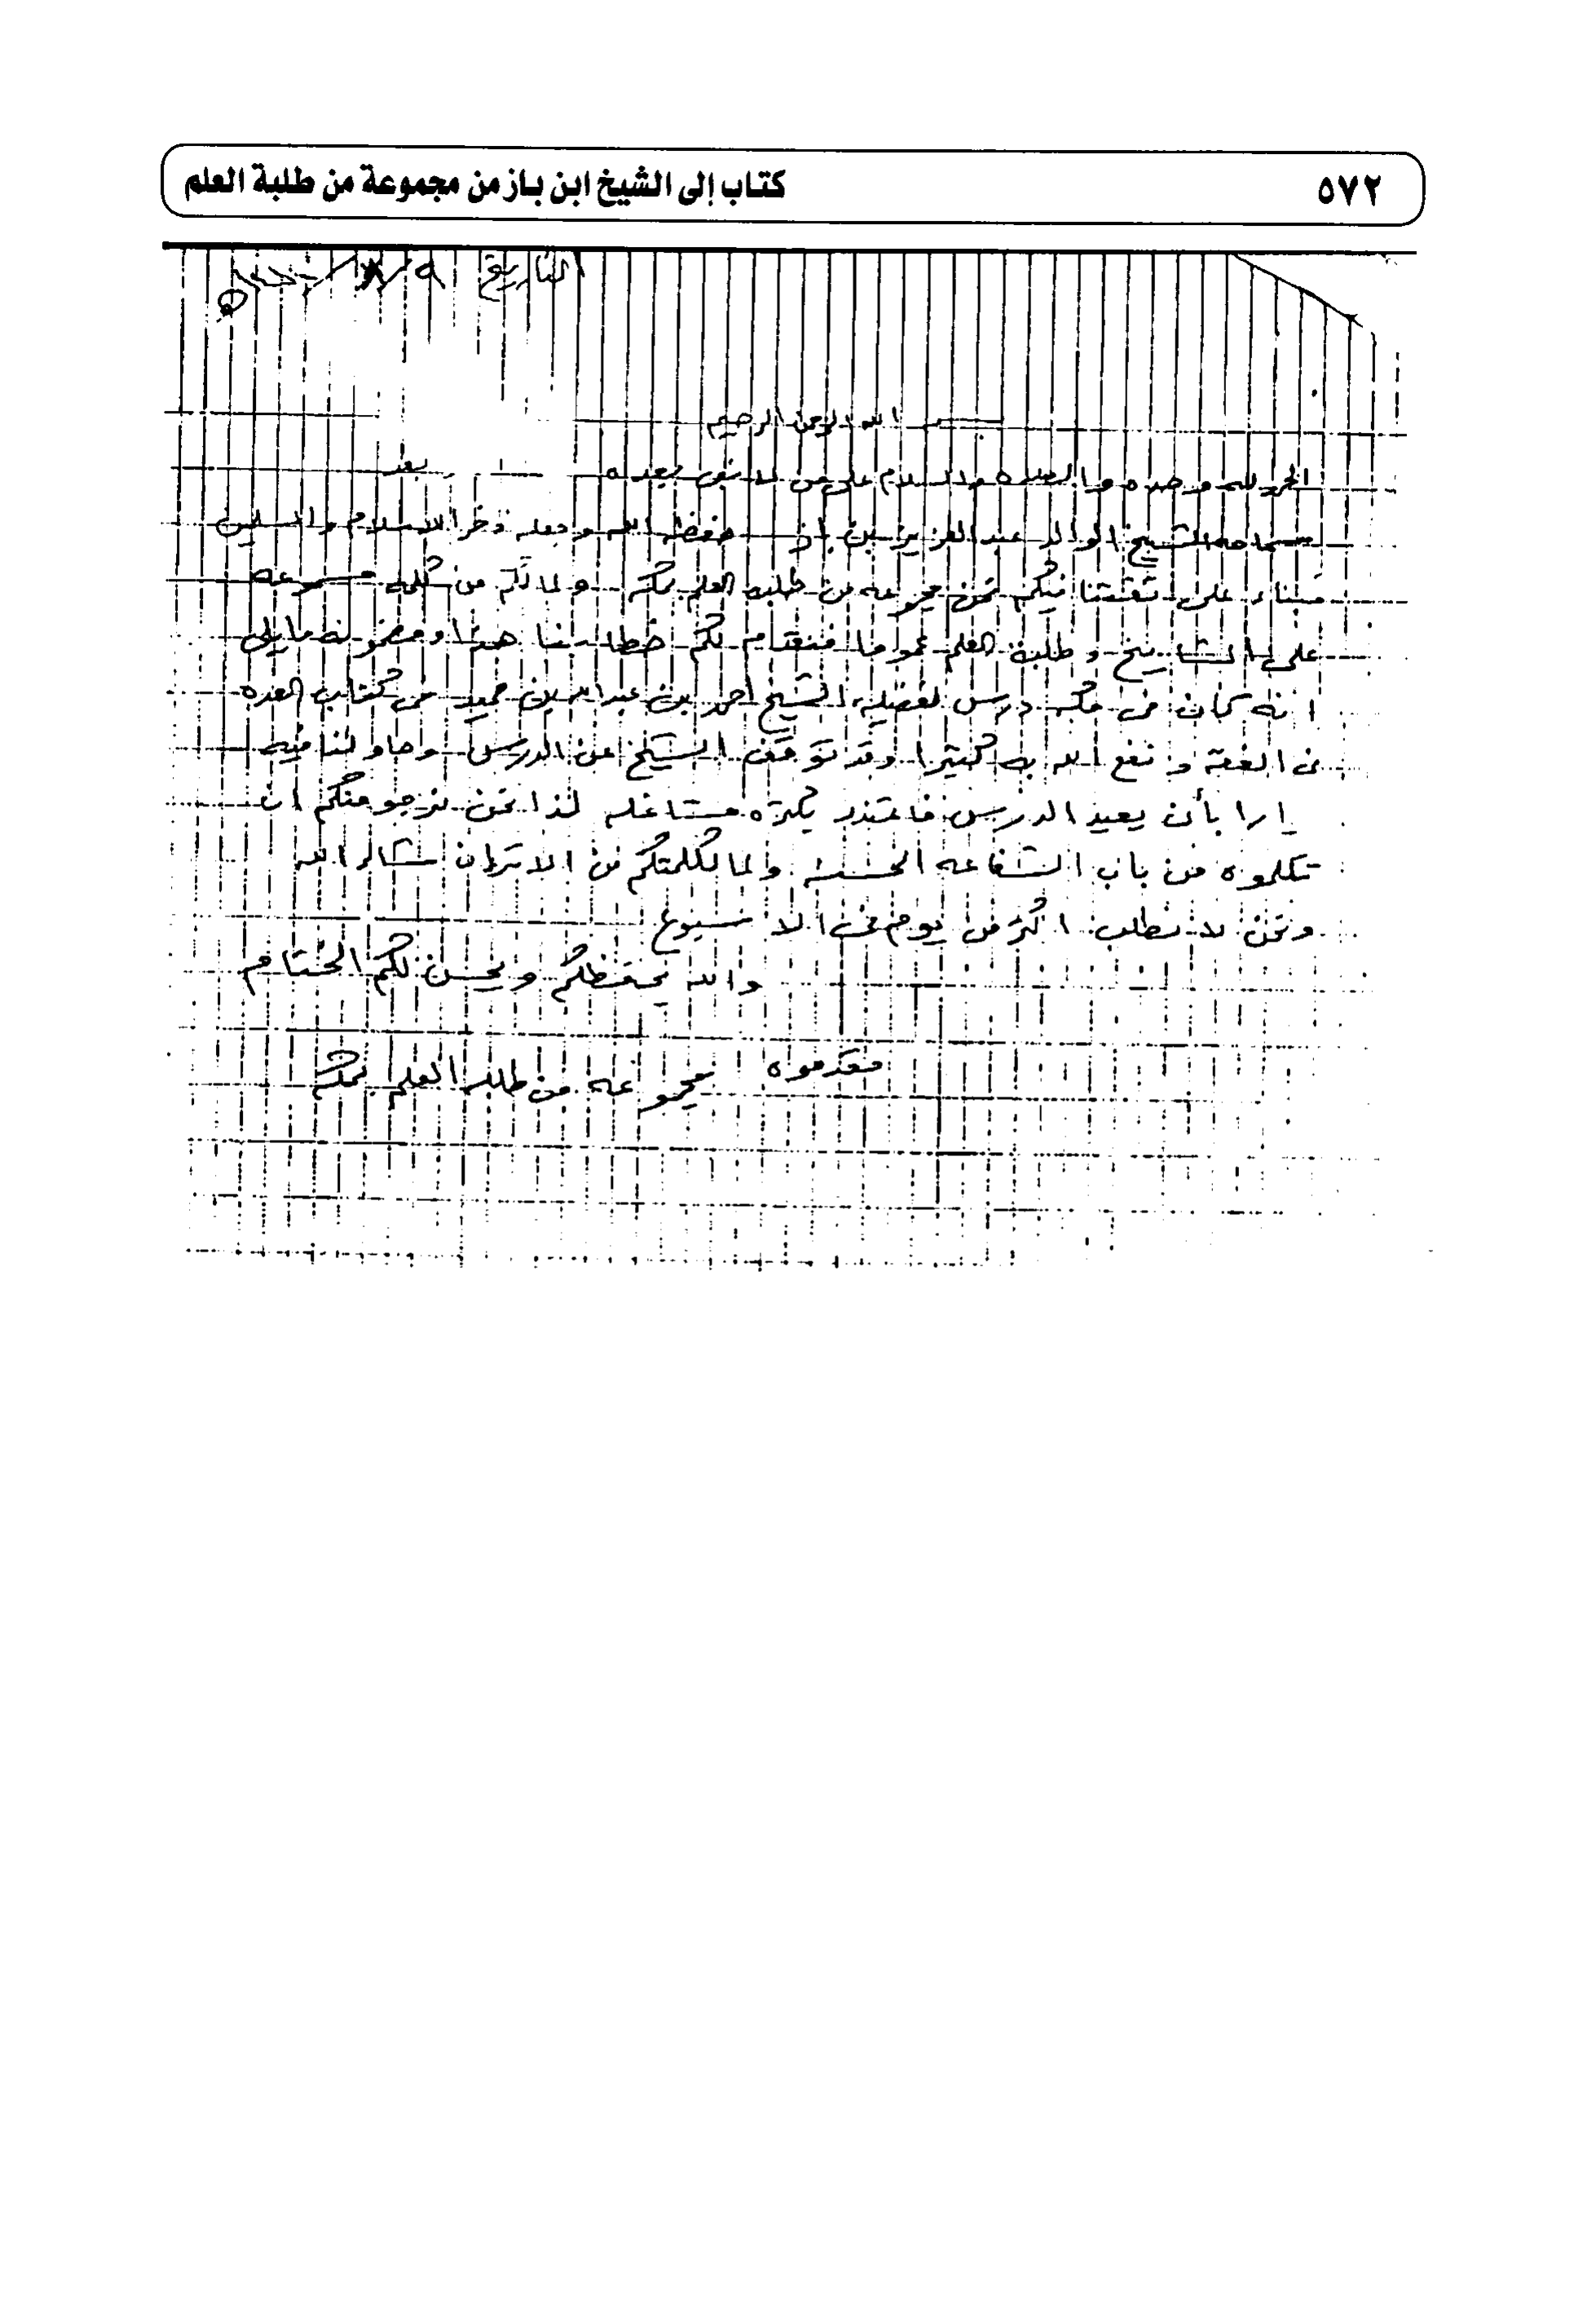 ٥٧٢
كتاب إلى الشيخ ابن باز من مجموعة من طلبة العلم
التاريخ
بسم الله الرحمن الرحيم
الحمد لله وحده والصلاة والسلام على من لا نبي بعده بعد
سماحة الشيخ الوالد عبد العزيز بن باز حفظه الله وجعله ذخرا للاسلام والمسلمين
فبناء على ثقتنا فيكم نحن مجموعه من طلبه العلم بمكه ولما لكم من كلمه مسموعه
على المشايخ و طلبة العلم عموما فنتقدم لكم خطابنا هذا ومضمونه ما يلي
انه كان في مكه درس لفضيله الشيخ احمد بن عبد الله بن حميد من كتاب العده
في الفقه و نفع الله به كثيرا وقد توقف الشيخ عن الدرس وحاولنا فيه
مرارا بأن يعيد الدرس فاعتذر بكثره مشاغله لذا نحن نرجو منكم ان
تكلموه من باب الشفاعه الحسنه ولما لكلمتكم من الاثر ان شاء الله
ونحن لا نطلب اكثر من يوم في الاسبوع
والله يحفظكم ويحسن لكم الختام
مقدموه مجموعه من طلبه العلم بمكه